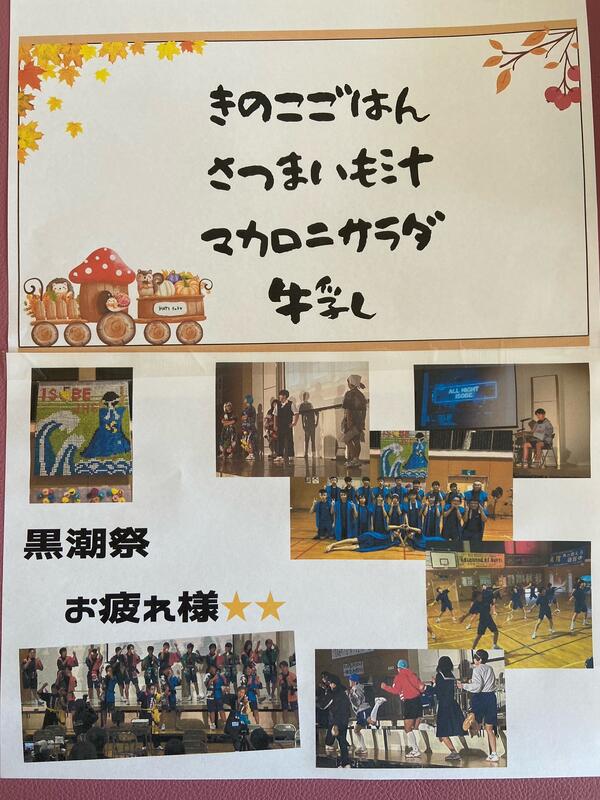 きのこごはん
さつまいも汁
マカロニサラダ
牛乳
ISOBE
ALL NIGHT
ISOBE
黒潮祭
お疲れ様★★